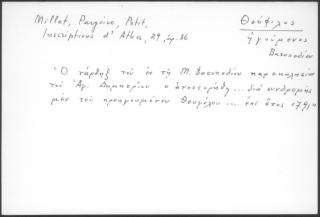 Millet, Pargoire, Petit,
Inscriptions d'Athos, 29, ἀρ. 86
Θεόφιλος
ἡγούμενος
Βατοπεδίου
Ὁ νάρθηξ τοῦ ἐν τῇ Μ. Βατοπεδίου παρεκκλησίου
τοῦ Ἁγ. Δημητρίου ἀνεκτίσθη ... διὰ συνδρομῆς
μὲν τοῦ προηγουμένου Θεοφίλου ... ἐπὶ ἔτος 1791